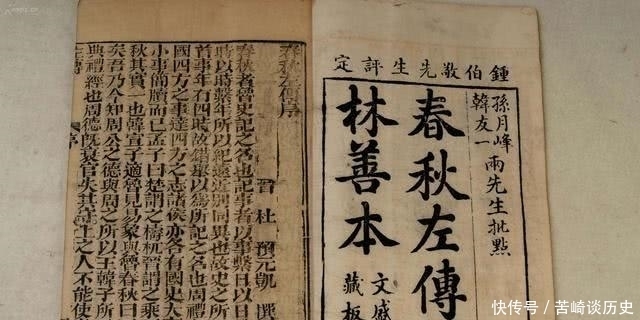 鍾伯敬先生評定
孫月峰
韓友一
兩先生批點
春秋左傳
林善本
文盛
藏板
春秋左傳序
晉 杜 預元凱 撰
春秋者魯史記之名也記事者以事繫日以日
時以時繫年所以紀遠近別同異也故史之所
首事年有四時故錯舉以為所記之名也周禮
國四方之事達四方之志諸侯亦各有國史大
小事簡牘而已孟子曰楚謂之檮杌晉謂之乘
秋其實一也韓宣子適魯見易象與魯春秋曰
矣吾乃今知周公之德與周之所以王韓子所
典禮經也周德既衰官失其守上之人不能使
左傳 序
快传号／苦崎谈历史